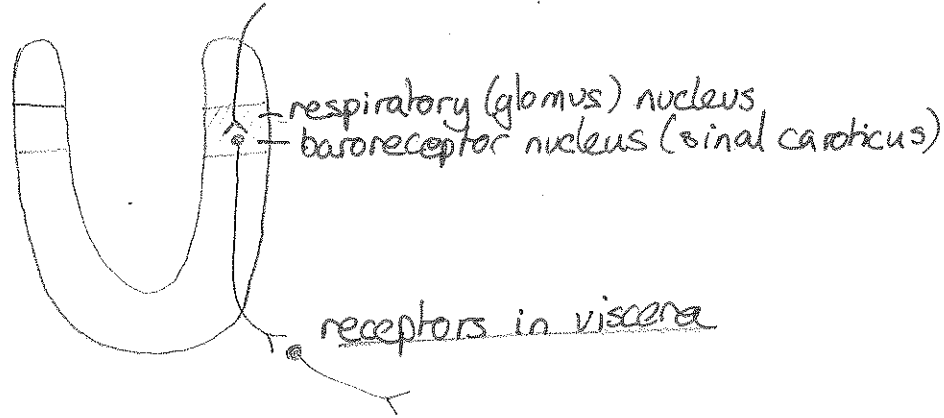 respiratory (glomus) nucleus
baroreceptor nucleus (sinal caroticus)
receptors in viscera